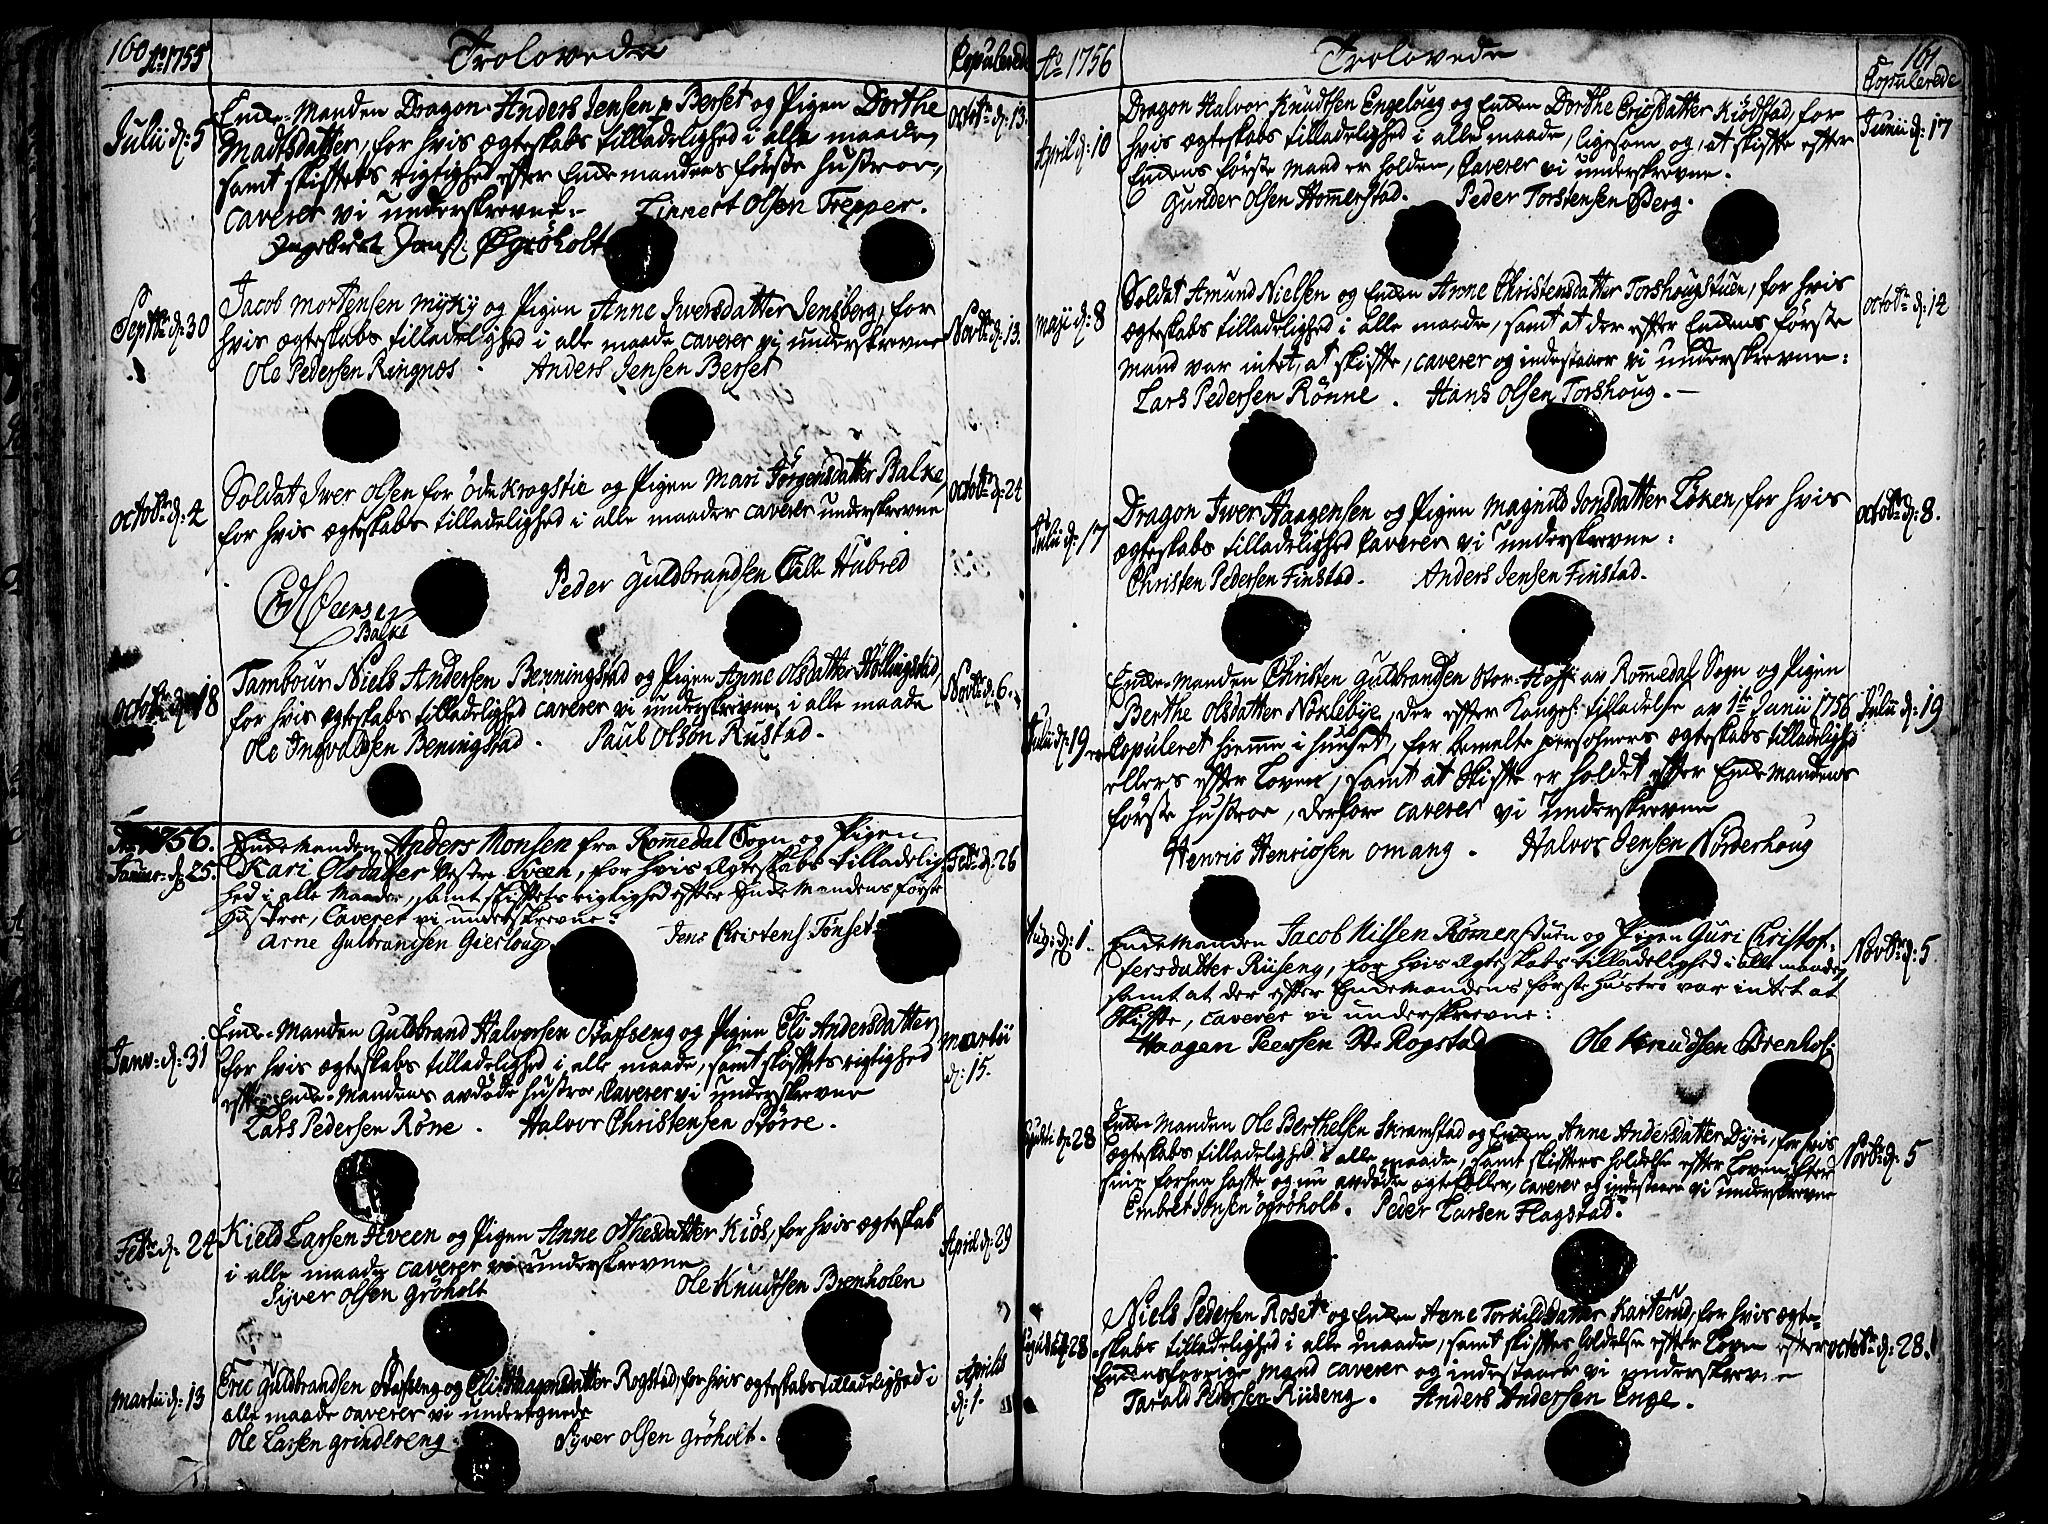 160 Ao 1755 Trolovede Copulerede
Julii d: 5 Enke-Manden Dragon Anders Jensen Berset og Pigen Dorthe Octobr d: 13.
Madtsdatter, for hvis ægteskabs tilladelighed i alle maader,
samt skiftets rigtighed efter Enkemandens første Hustroe,
caverer vi underskrevne. Linnert Olsen Trepper.
Ingebret Jons: Øgrøholt
Septbr d: 30 Jacob Mortensen Myhy og Pigen Anne Iversdatter Jensberg, for Novbr d: 13.
hvis ægteskabs tilladelighed i alle maade caverer vi underskrevne
Ole Pedersen Ringnes. Anders Jensen Berset
Octobr d: 2 Soldat Iver Olsen for Øde Krogstie og Pigen Mari Jørgensdatter Balke, Octobr d: 24
for hvis ægteskabs tilladelighed i alle maader caverer underskrevne
Peder Guldbrandsen Hubred
Balke
Octobr d: 18 Tambour Niels Andersen Benningstad og Pigen Anne Olsdatter Høllingstad, Novbr d: 6.
for hvis ægteskabs tilladelighed caverer vi underskrevne i alle maade
Ole Ingvoldsen Beningstad. Paul Olson Rustad.
Ao 1756.
Januar: d: 25. Enkemanden Anders Monsen fra Rommedal Sogn og Pigen Febr d: 26
Kari Olsdatter Vestre Sveen, for hvis Ægteskabs tilladelig
hed i alle Maader, samt skiftets rigtighed efter Enke Mandens første
Hustroe, Caverer vi underskrevne:
Arne Gulbrandsen Gierloug Jens Christens Tønset
Janv: d: 31 Enke-Manden Guldbrand Halvorsen Stafseng og Pigen Eli Andersdatter, Martii
for hvis ægteskabs tilladelighed i alle maade, samt skiftets rigtighed d: 15.
efter Enke-Mandens avdøde Hustroe, Caverer vi underskrevne
Lars Pedersen Røne. Halvor Christensen Større.
Febr d: 24 Kield Larsen Hveen og Pigen Anne Othesdatter Kiøs, for hvis ægteskab April d: 29
i alle maade caverer vi underskrevne
Syver Olsen Grøholt Ole Knudtsen Brenholen
Martii d: 13 Eric Guldbrandsen Stafseng og Eli Haagensdatter Rogstad, for hvis ægteskabs tilladelighed i Aprilis
alle maade caverer vi undertegnede d: 1.
Ole Larsen Grindereng. Syver Olsen Grøholt.
Ao 1756 Trolovede 161 Copulerede
April d: 10 Dragon Halvor Knudtsen Engeloug og Enken Dorthe Ericsdatter Kiødstad, for Junii d: 17
hvis ægteskabs tilladelighed i alle maade, ligesom og, at skifte efter
Enkens første Mand er holden, Caverer vi underskrevne.
Gunder Olsen Hommerstad. Peder Torstensen Berg.
Maji d: 8 Soldat Amund Nielsen og Enken Anne Christensdatter Torshougstuen, for hvis Octobr d: 12
ægteskabs tilladelighed i alle maade, samt at der efter Enkens første
Mand var intet, at skifte, caverer og indestaaer vi underskrevne:
Lars Pedersen Rönne. Hans Olsen Torshoug.
Julii d: 17 Dragon Iver Haagensen og Pigen Magnild Jonsdatter Løken, for hvis Octobr d: 8.
ægteskabs tilladelighed Caverer vi underskrevne:
Christen Pedersen Finstad. Anders Jensen Finstad.
Julii d: 19 Enke-Manden Christen Guldbrandsen Stor-Hoff av Rommedals Sogn og Pigen Julii d: 19
Berthe Olsdatter Nöklebye, der efter Konges: tilladelse av 1te Junii 1756
er Copuleret hiemme i Huuset, for bemelte personers ægteskabs tilladelighed
ellers efter Loven, samt at Skifte er holdet efter Enke Mandens
første Hustroe, derfore caverer vi underskrevne
Henric Henricsen Omang. Halvor Jensen Nörderhoug
Aug: d: 1. Enkemanden Jacob Nilsen Rømenstuen og Pigen Guri Christof- Novbr d: 5.
fersdatter Riiseng, for hvis Ægteskabs tilladelighed i alle maader,
samt at der efter Enkemandens første Hustro var intet at
Skifte, caverer vi underskrevne:
Haagen Peersen Rogstad Ole Knudsen Brenhol:
Augusti d: 28 Enke-Manden Ole Berthelsen Skramstad og Enken Anne Andersdatter Dyri, for hvis Novbr d: 5
ægteskabs tilladelighed i alle maade, samt skiftes holdelse efter Loven efter
sine forhen hafte og nu avdøde ægtefæller, caverer og indestaaer vi underskrevne
Embret Jonsen Ögröholt. Peder Larsen Flagstad.
Augusti d: 28 Niels Pedersen Roset og Enken Anne Torkildsdatter Karterud, for hvis ægte- Octobr d: 28.
skabs tilladelighed i alle maade, samt skiftes holdelse efter Loven efter
Enkens forrige mand caverer og indestaaer vi underskrevne
Tarald Pedersen Riiseng. Anders Andersen Enge.